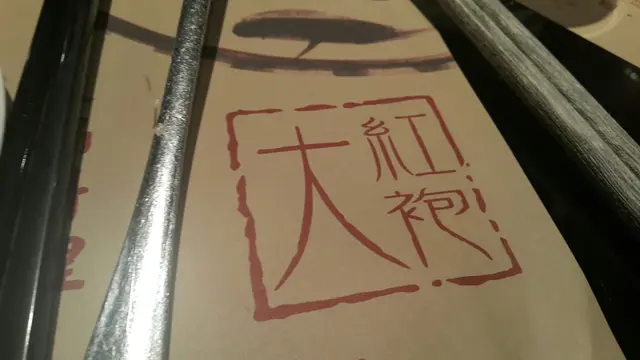 大紅袍